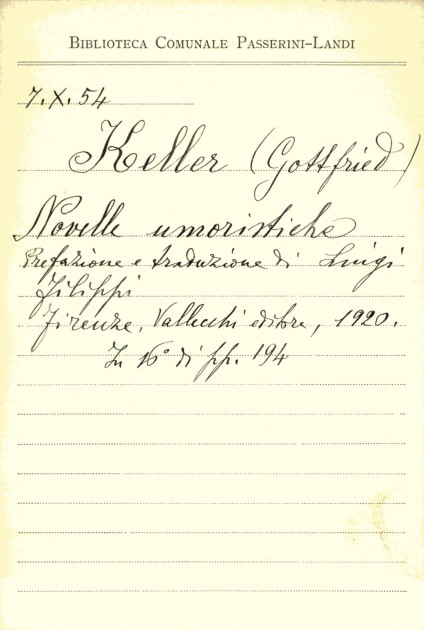 BIBLIOTECA COMUNALE PASSERINI-LANDI
7.X.54
Keller (Gottfried)
Novelle umoristiche
Prefazione e traduzione di Luigi
Filippi
Firenze, Vallecchi editore, 1920.
In 16° di pp. 194